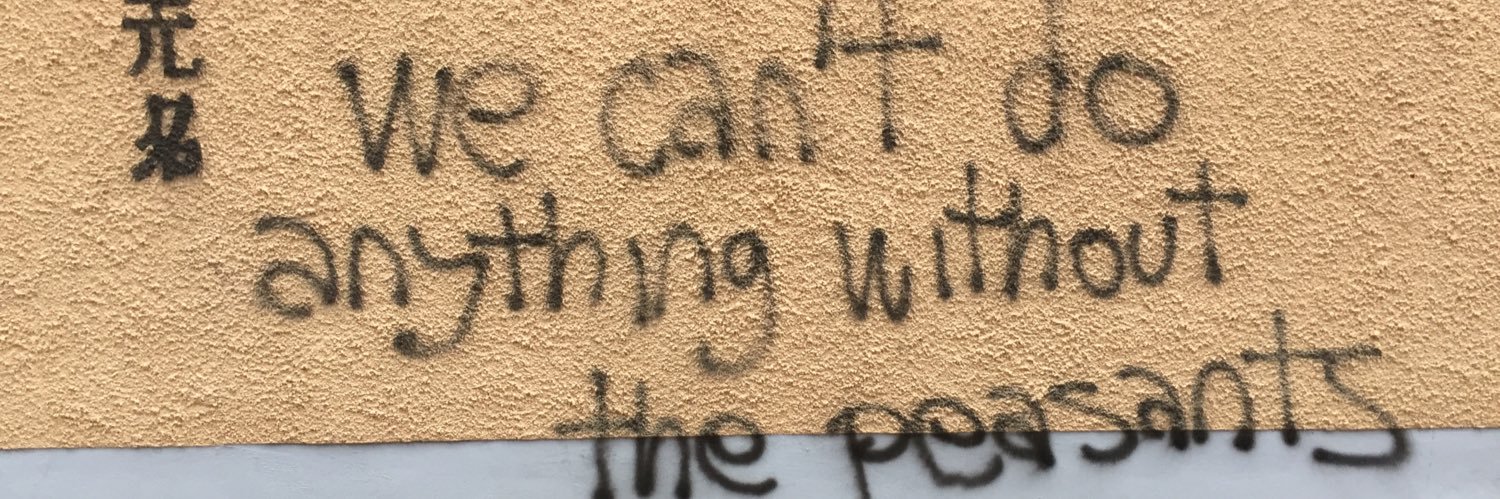 无名
we can't do
anything without
the peasants